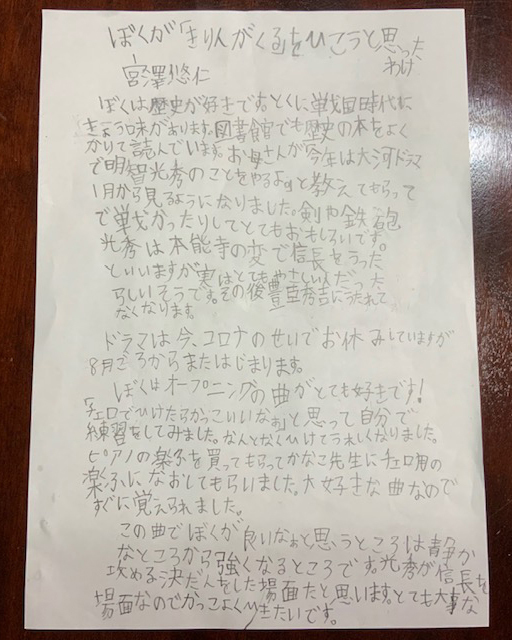 ぼくが「きりんがくる」をひこうと思った
わけ
宮澤悠仁
ぼくは歴史が好きです。とくに戦国時代に
きょう味があります。図書館でも歴史の本をよく
かりて読んでいます。お母さんが今年は大河ドラマ
で明智光秀のことをやるよ」と教えてもらって
1月から見るようになりました。剣や鉄砲
で戦かったりしてとてもおもしろいです。
光秀は本能寺の変で信長をうった
といいますが実はとてもやさしい人だった
らしいそうです。その後豊臣秀吉にうたれて
なくなります。
ドラマは今、コロナのせいでお休みしていますが
8月ごろからまたはじまります。
ぼくはオープニングの曲がとても好きです!
「チェロでひけたらかっこいいなぁ」と思って自分で
練習をしてみました。なんとなくひけてうれしくなりました。
ピアノの楽ふを買ってもらってかなこ先生にチェロ用の
楽ふになおしてもらいました。大好きな曲なので
すぐに覚えられました。
この曲でぼくが良いなぁと思うところは静か
なところから強くなるところです。光秀が信長を
攻める決だんをした場面だと思います。とても大事な
場面なのでかっこよくひきたいです。